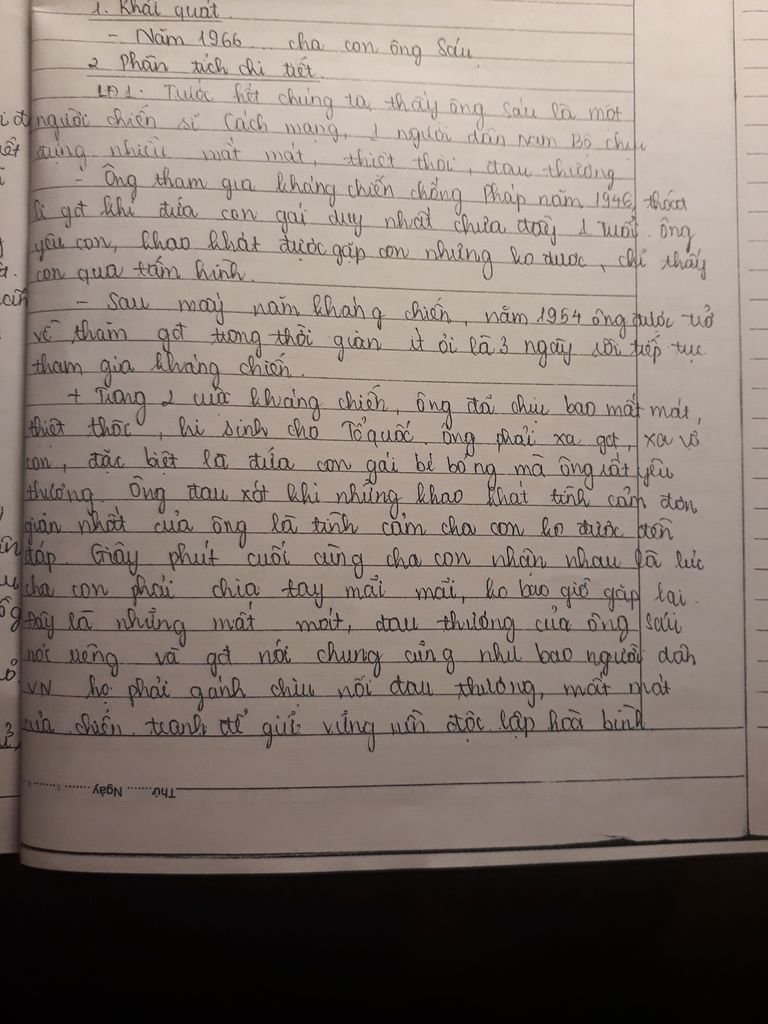 1. Khái quát
- Năm 1966 ... cha con ông Sáu
2 Phân tích chi tiết
LĐ1. Trước hết chúng ta thấy ông Sáu là một
người chiến sĩ Cách mạng, 1 người dân Nam Bộ chịu
đựng nhiều mất mát, thiệt thòi, đau thương
- Ông tham gia kháng chiến chống Pháp năm 1946, thoát
li gđ khi đứa con gái duy nhất chưa đầy 1 tuổi. Ông
yêu con, khao khát được gặp con nhưng ko được, chỉ thấy
con qua tấm hình.
- Sau mấy năm kháng chiến, năm 1954 ông được trở
về thăm gđ trong thời gian ít ỏi là 3 ngày rồi tiếp tục
tham gia kháng chiến.
+ Trong 2 cuộc kháng chiến, ông đã chịu bao mất mát,
thiệt thòi, hi sinh cho Tổ quốc. Ông phải xa gđ, xa vợ
con, đặc biệt là đứa con gái bé bỏng mà ông rất yêu
thương. Ông đau xót khi những khao khát tình cảm đơn
giản nhất của ông là tình cảm cha con ko được đền
đáp. Giây phút cuối cùng cha con nhận nhau là lúc
cha con phải chia tay mãi mãi, ko bao giờ gặp lại.
Đây là những mất mát, đau thương của ông Sáu
nói riêng và gđ nói chung cũng như bao người dân
VN họ phải gánh chịu nỗi đau thương, mất mát
của chiến tranh để giữ vững nền độc lập hoà bình
Thứ ....... Ngày .......